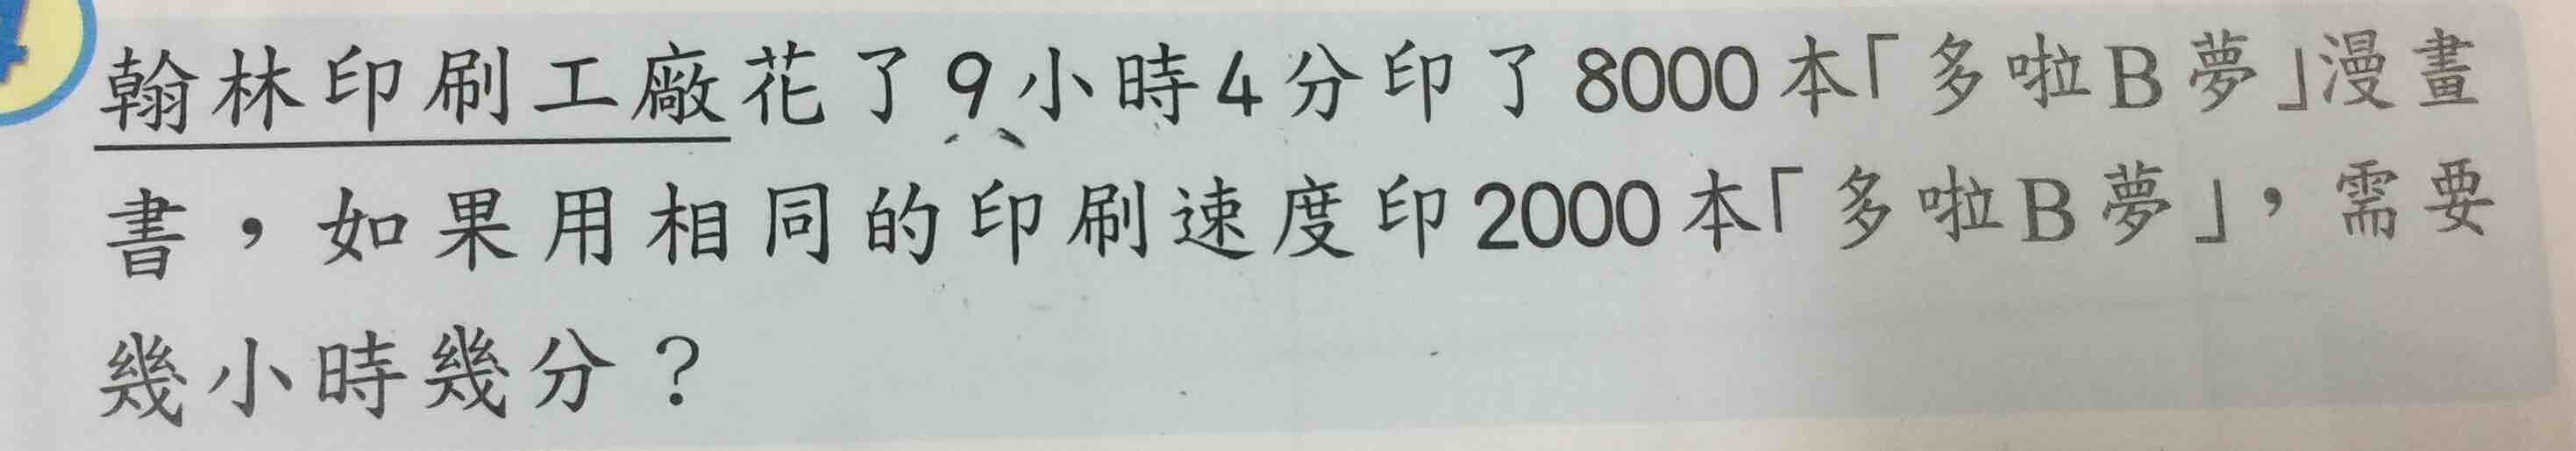 4
翰林印刷工廠花了9小時4分印了8000本「多啦B夢」漫畫
書，如果用相同的印刷速度印2000本「多啦B夢」，需要
幾小時幾分？